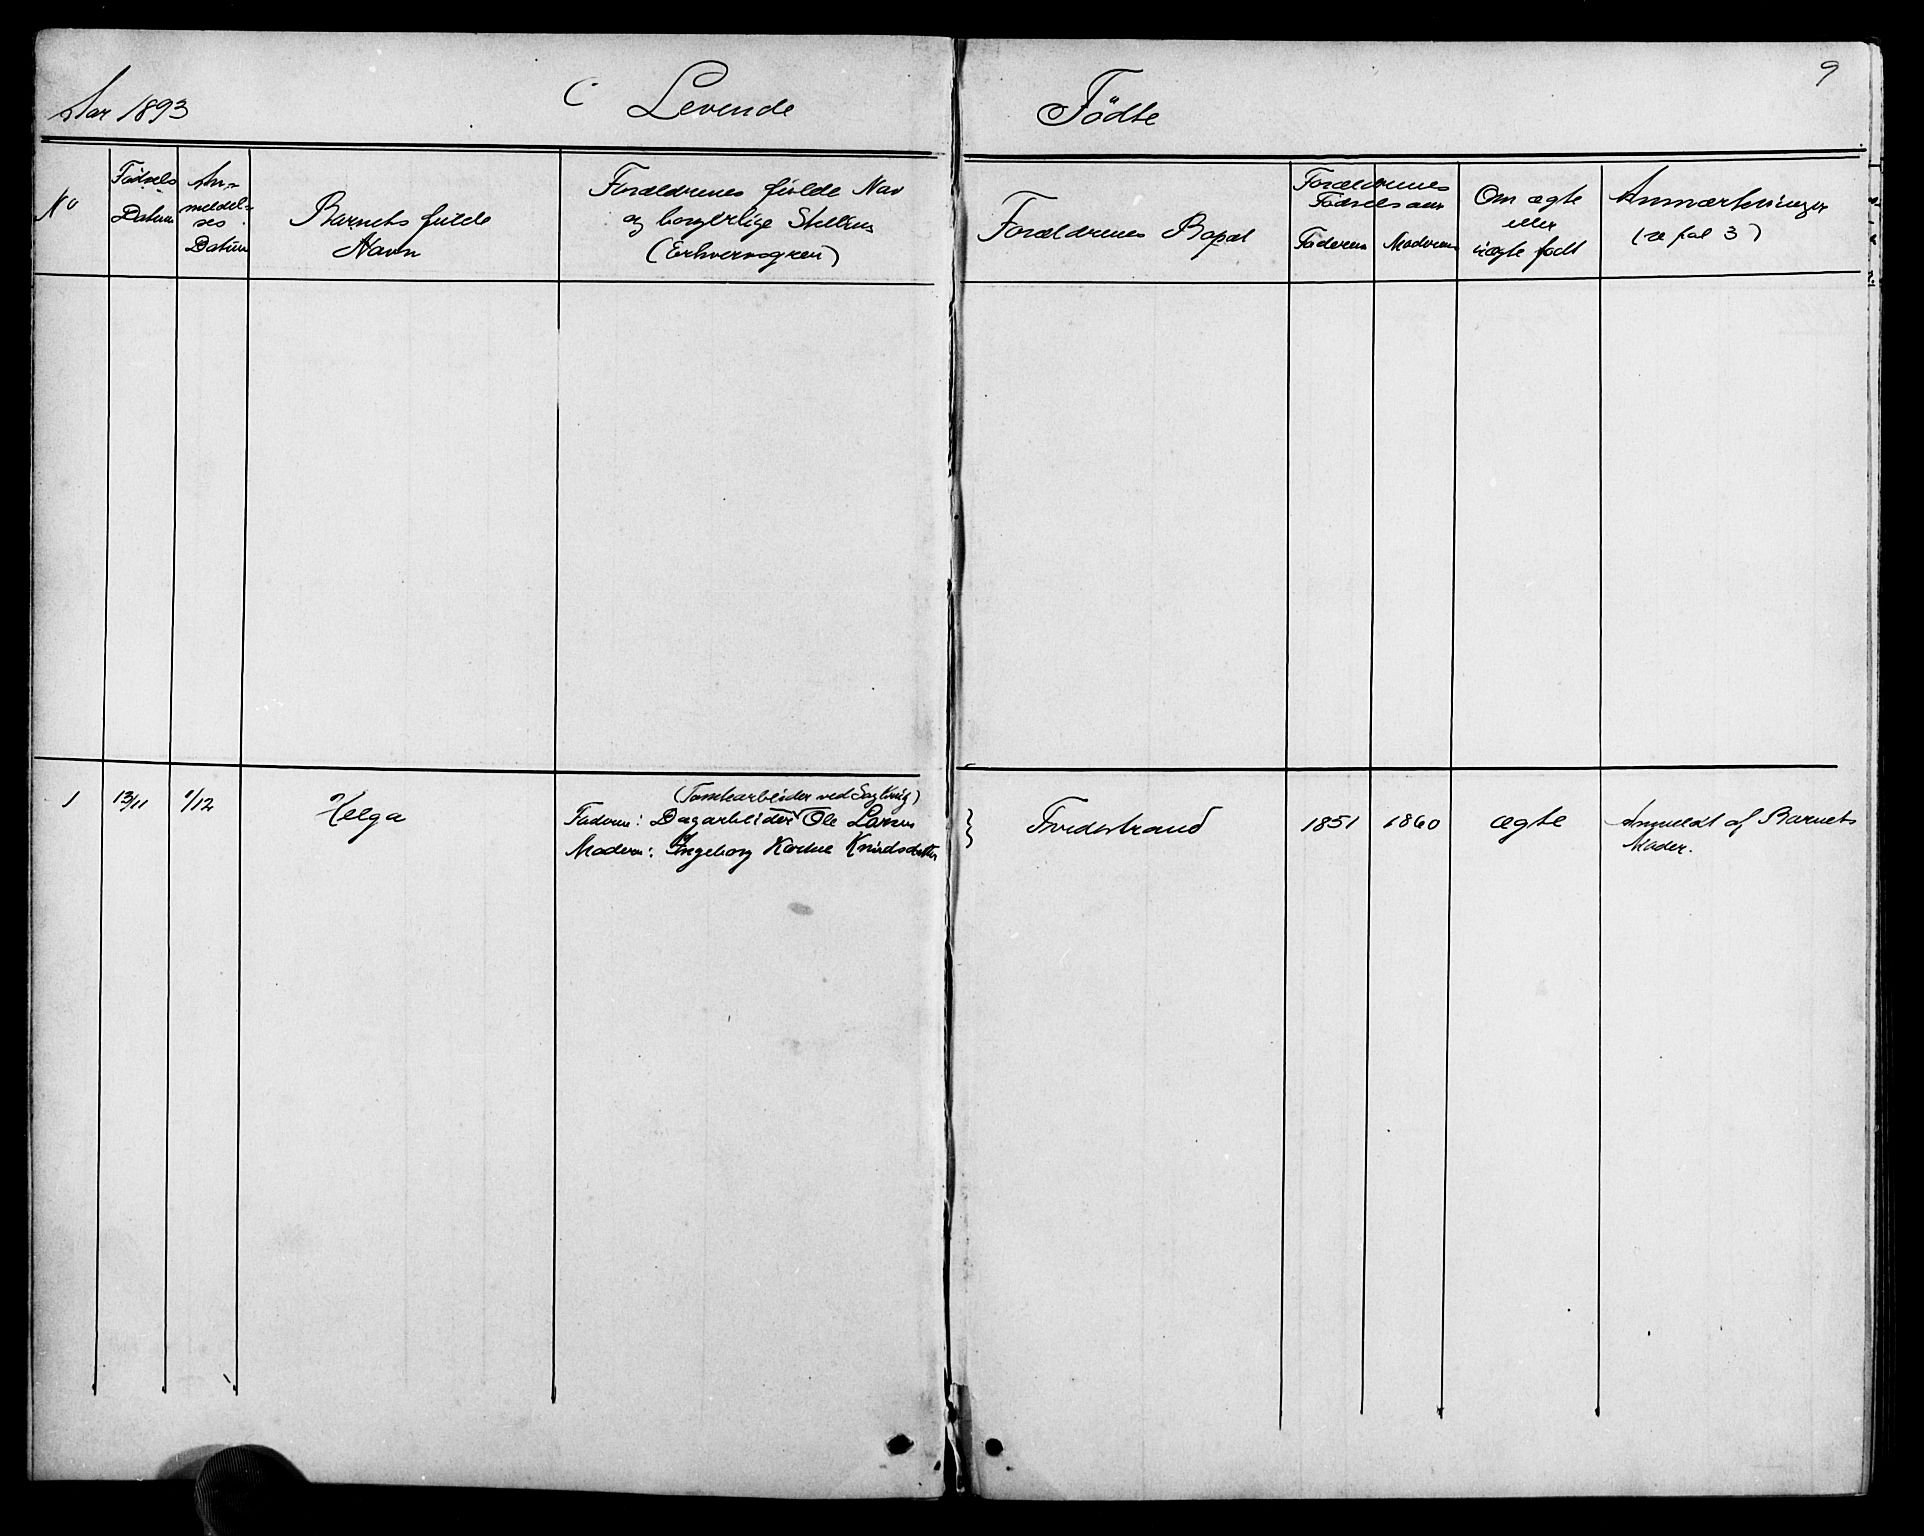 Aar 1893
C Levende
Fødte
9
No
Fødsels
Datum
An-
meldel-
ses
Datum
Barnets fulde
Navn
Forældrenes fulde Nav
og borgerlige Stilling
(Erhvervsgren)
Forældrenes Bopæl
Forældrenes
Fødselsaar
Faderens
Moderens
Om ægte
eller
uægte født
Anmærkninger
(se fol 3)
1
13/11
1/12
Helga
(Tomtearbeider ved Sagbrug)
Faderen: Dagarbeider Ole Larsen
Moderen: Ingeborg Karine Knudsdatter
Tvedestrand
1851
1860
ægte
Anmeldt af Barnets
Moder.